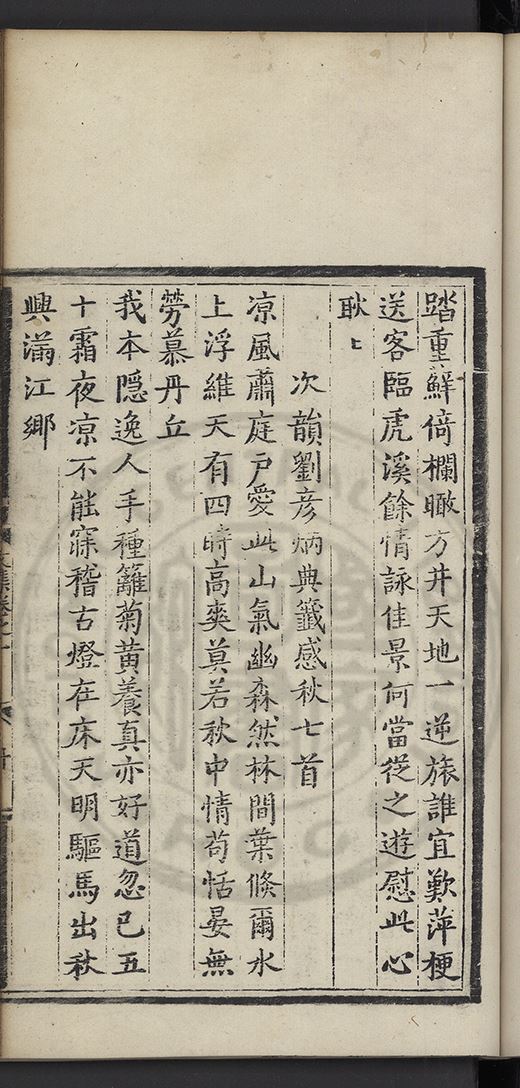 踏重蘚倚欄瞰方井天地一逆旅誰宜歎萍梗
送客臨虎溪餘情詠佳景何當從之遊慰此心
耿〻
次韻劉彦炳典籤感秋七首
凉風肅庭戸愛此山氣幽森然林間葉倐爾水
上浮維天有四時高爽莫若秋中情苟恬晏無
勞慕丹丘
我本隠逸人手種籬菊黄養真亦好道忽已五
十霜夜凉不能寐稽古燈在床天明驅馬出秋
興滿江鄉
文集卷之